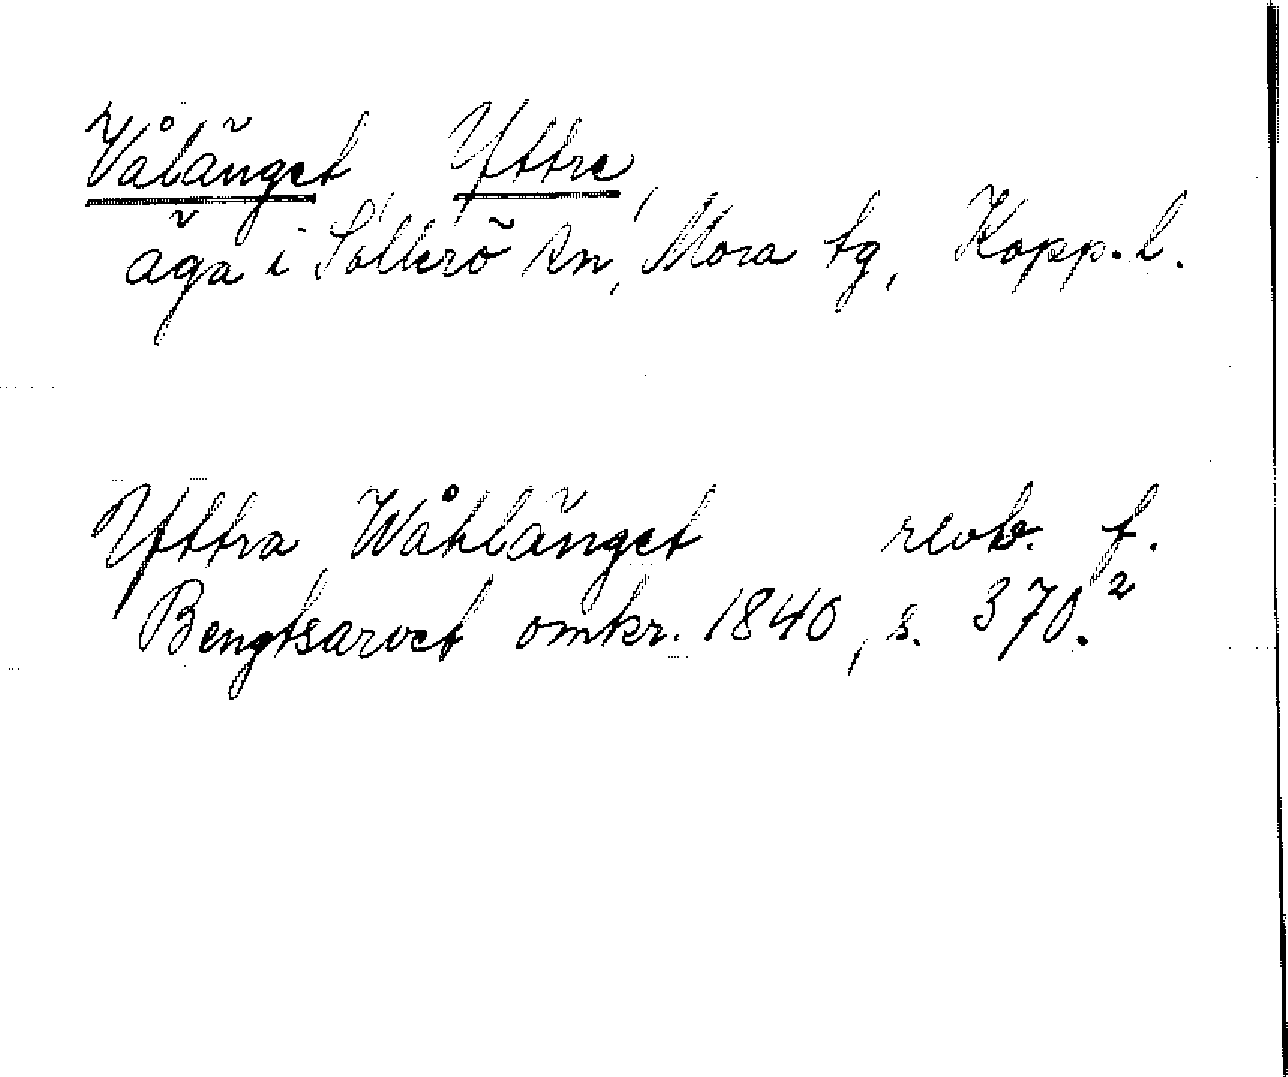 Vålänget Yttre,
äga i Sollerö sn, Mora tg, Kopp. l.
Yttra Wåhlänget revb. f.
Bengtsarvet omkr. 1840, s. 370.²